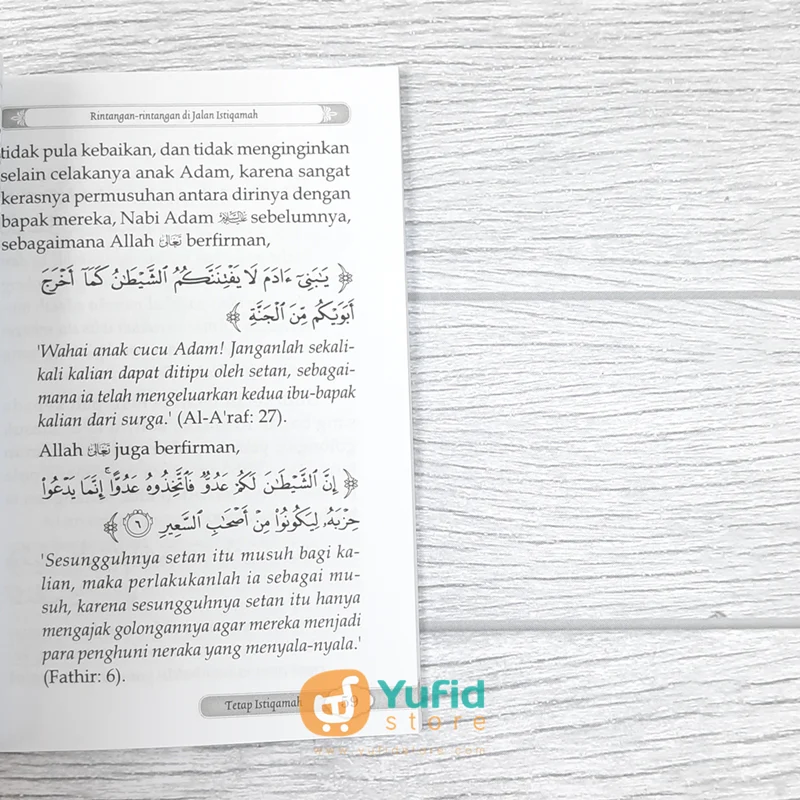 Rintangan-rintangan di Jalan Istiqamah
tidak pula kebaikan, dan tidak menginginkan
selain celakanya anak Adam, karena sangat
kerasnya permusuhan antara dirinya dengan
bapak mereka, Nabi Adam عليه السلام sebelumnya,
sebagaimana Allah تعالى berfirman,
﴿ يَـٰبَنِىٓ ءَادَمَ لَا يَفْتِنَنَّكُمُ ٱلشَّيْطَـٰنُ كَمَآ أَخْرَجَ
أَبَوَيْكُم مِّنَ ٱلْجَنَّةِ ﴾
'Wahai anak cucu Adam! Janganlah sekali-
kali kalian dapat ditipu oleh setan, sebagai-
mana ia telah mengeluarkan kedua ibu-bapak
kalian dari surga.' (Al-A'raf: 27).
Allah تعالى juga berfirman,
﴿ إِنَّ ٱلشَّيْطَـٰنَ لَكُمْ عَدُوٌّ فَٱتَّخِذُوهُ عَدُوًّا ۚ إِنَّمَا يَدْعُوا۟
حِزْبَهُۥ لِيَكُونُوا۟ مِنْ أَصْحَـٰبِ ٱلسَّعِيرِ ٦ ﴾
'Sesungguhnya setan itu musuh bagi ka-
lian, maka perlakukanlah ia sebagai mu-
suh, karena sesungguhnya setan itu hanya
mengajak golongannya agar mereka menjadi
para penghuni neraka yang menyala-nyala.'
(Fathir: 6).
Tetap Istiqamah
Yufid
store
www.yufidstore.com